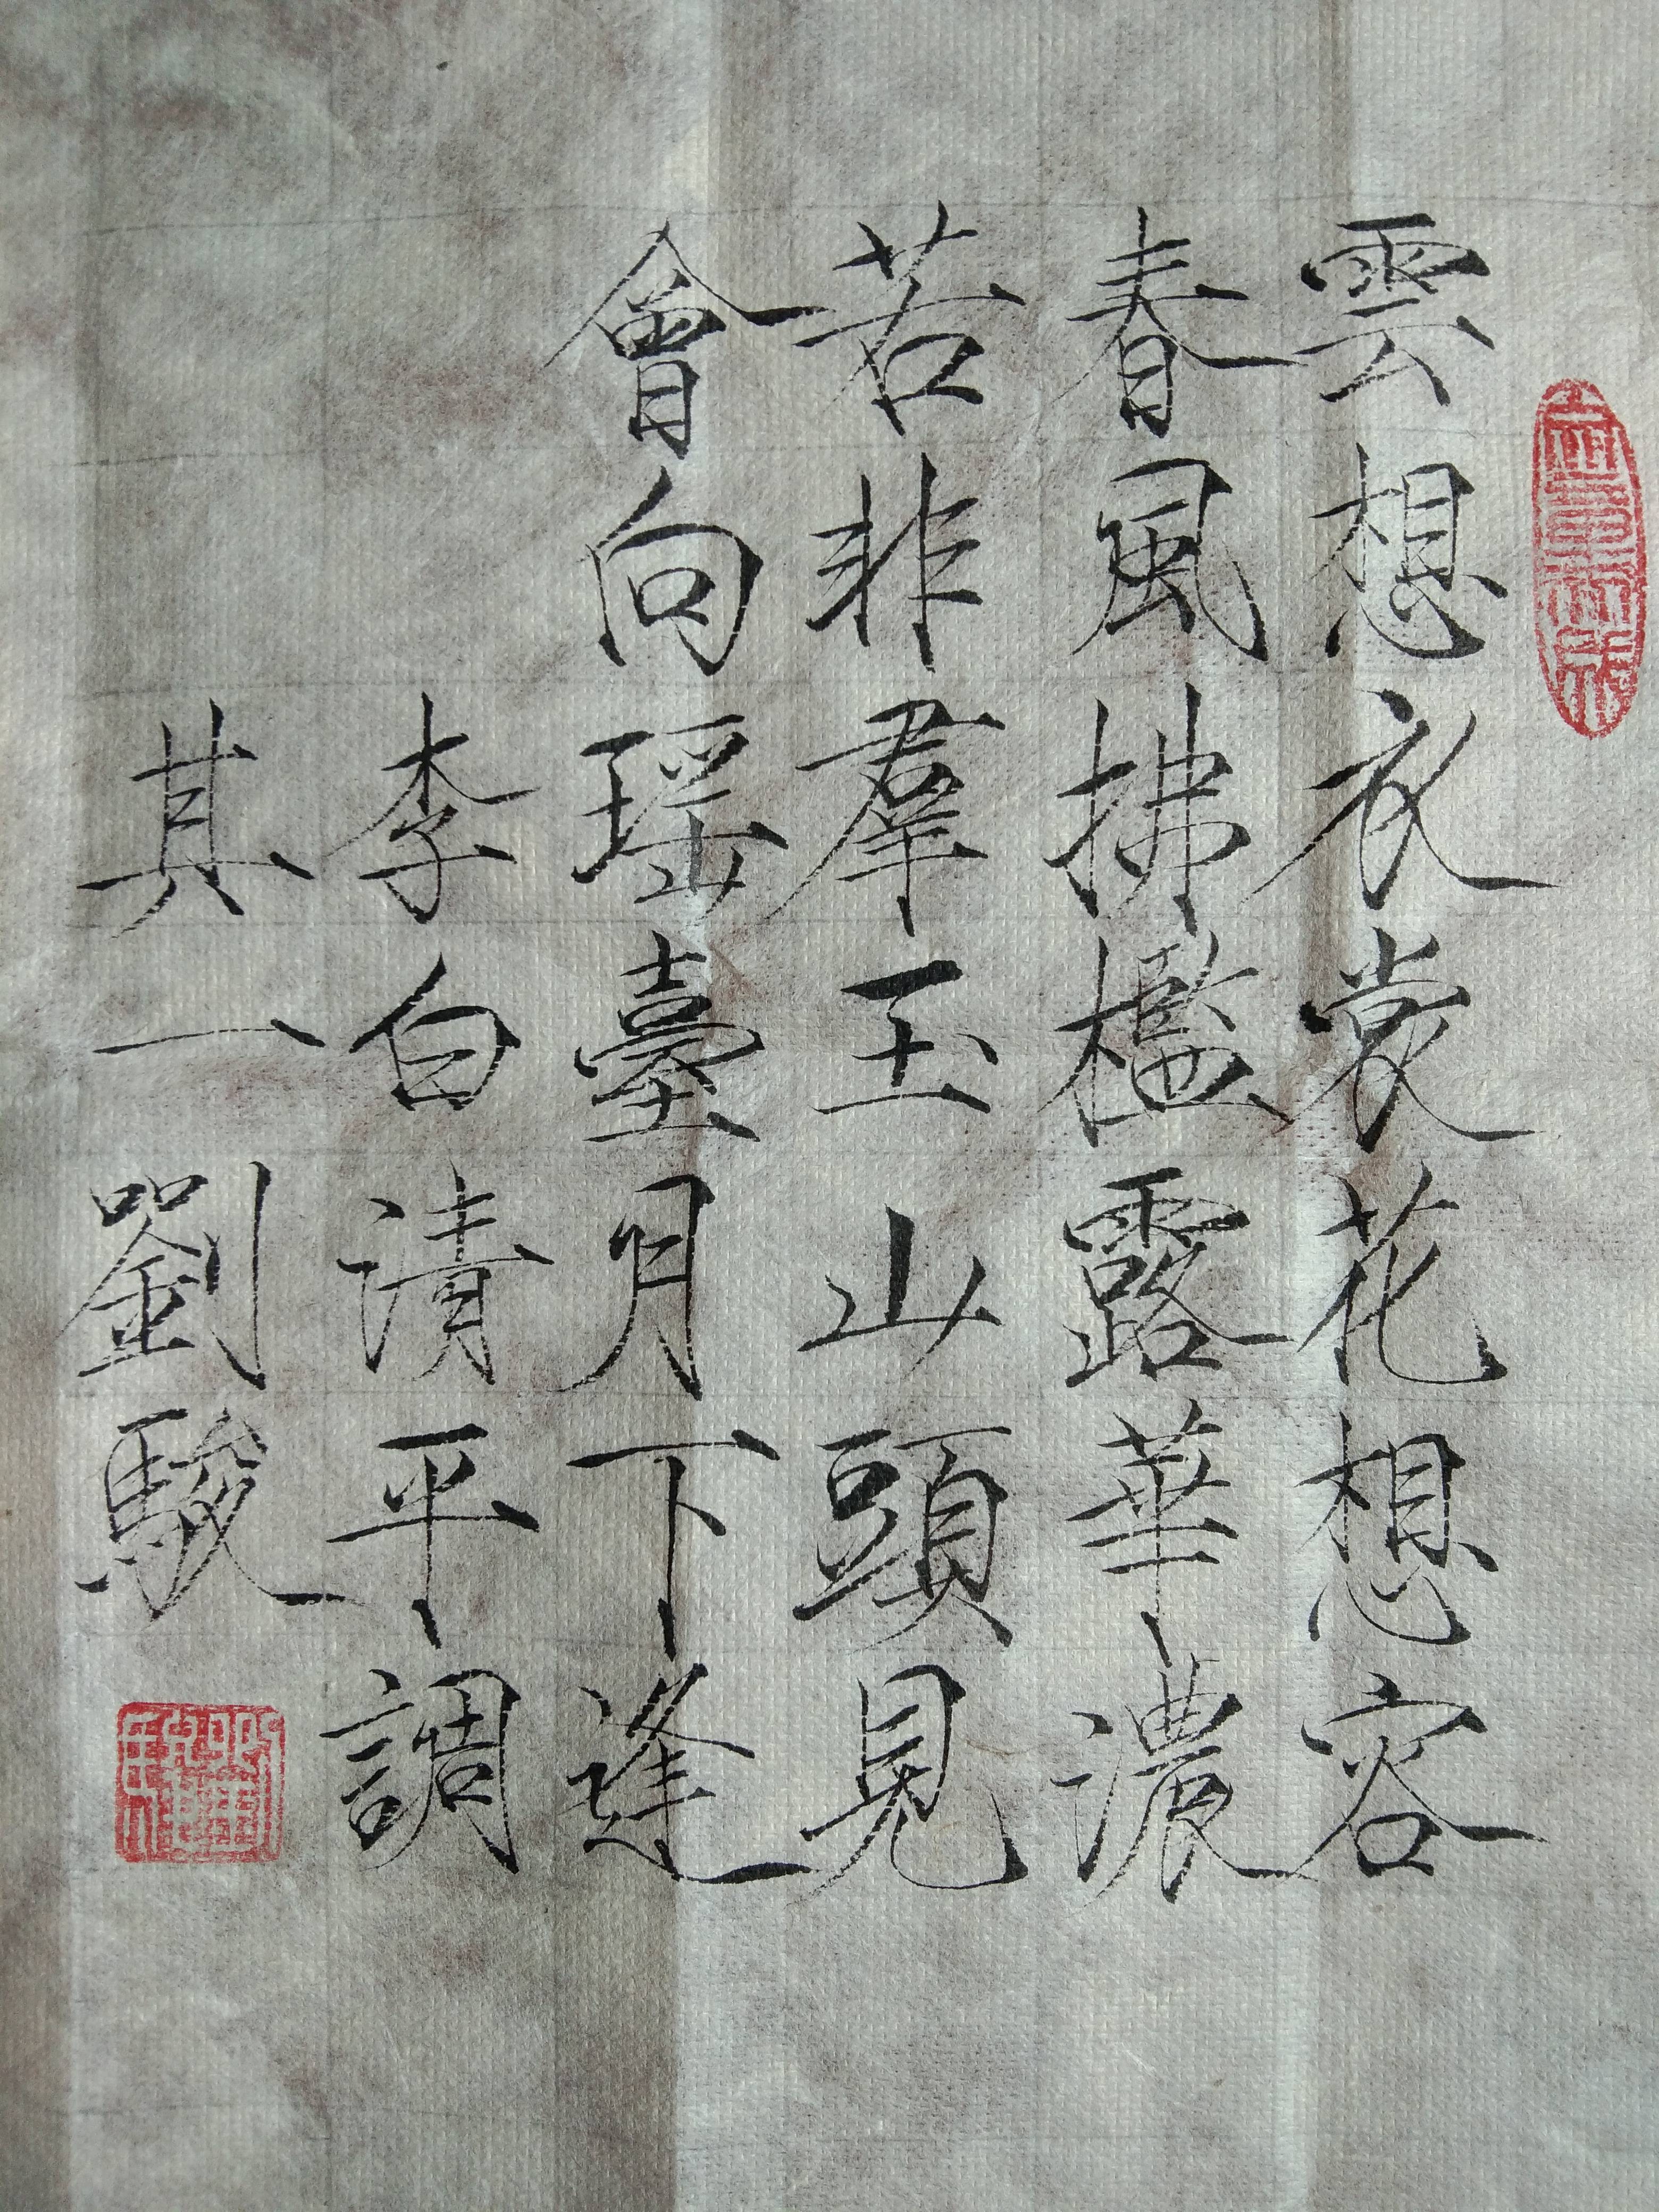 雲想衣裳花想容
春風拂檻露華濃
若非羣玉山頭見
會向瑶臺月下逢
李白清平調
其一 劉駿